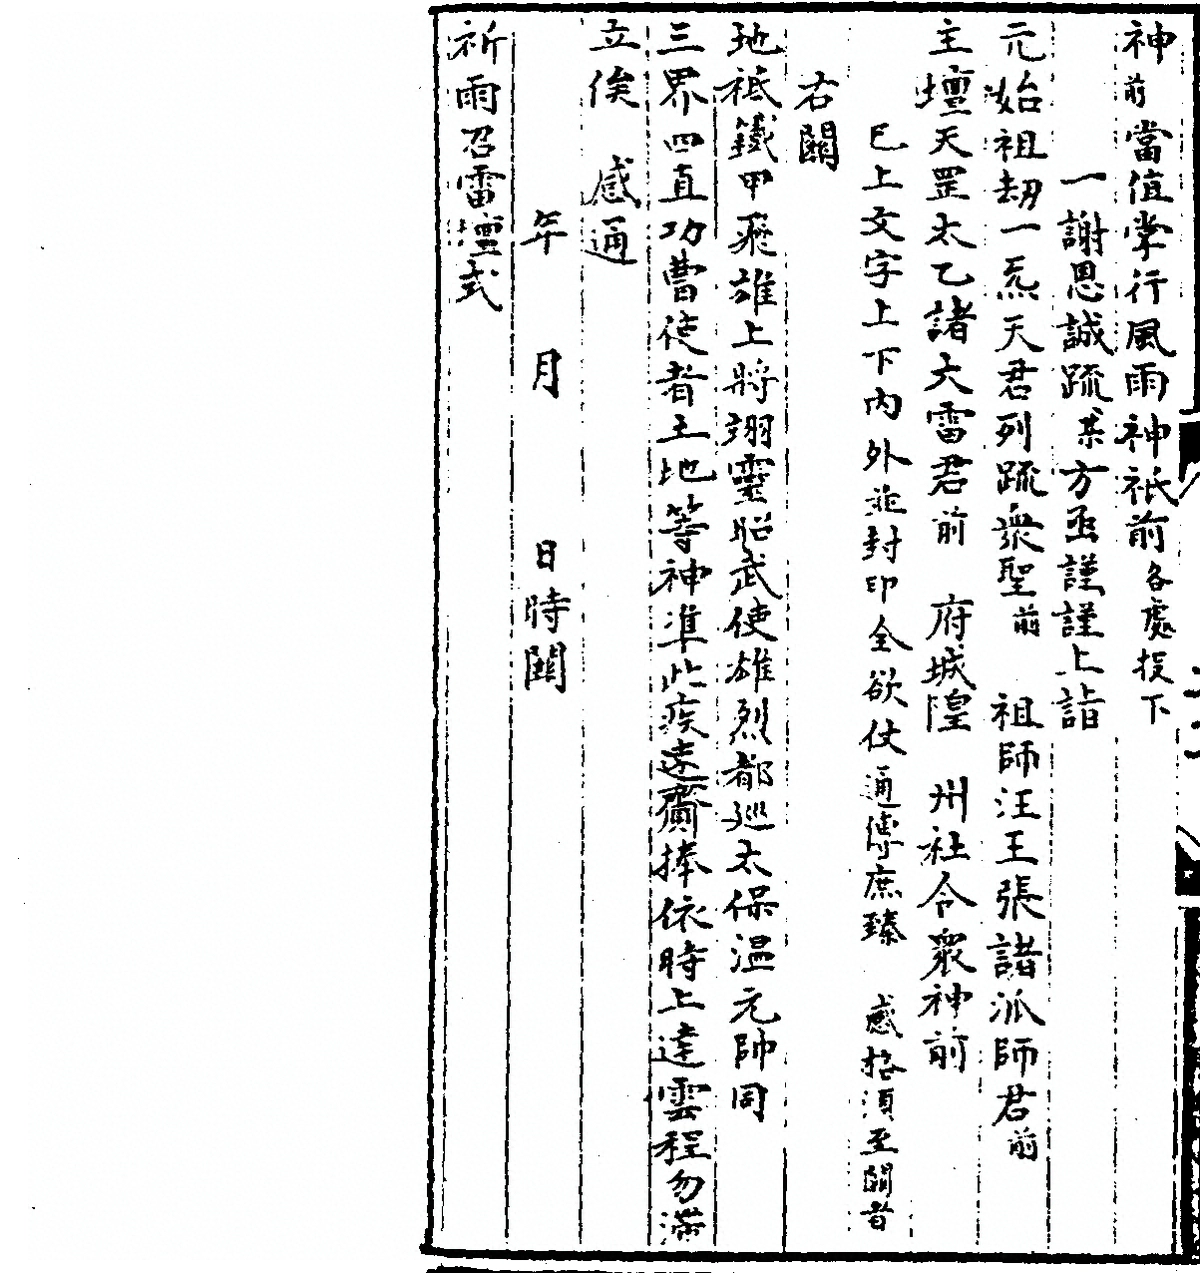 神前當值掌行風雨神祇前各處投下
一謝恩誠疏某方函謹謹上詣
元始祖劫一炁天君列疏衆聖前 祖師汪王張諸派師君前
主壇天罡太乙諸大雷君前 府城隍 州社令衆神前
已上文字上下內外並封印全欲仗通傳庶臻 感格須至關者
右關
地祇鐵甲飛雄上將翊靈昭武使雄烈都巡太保温元帥同
三界四直功曹使者土地等神準此疾速齎捧依時上達雲程勿滯
立俟 感通
年 月 日時關
祈雨召雷壇式